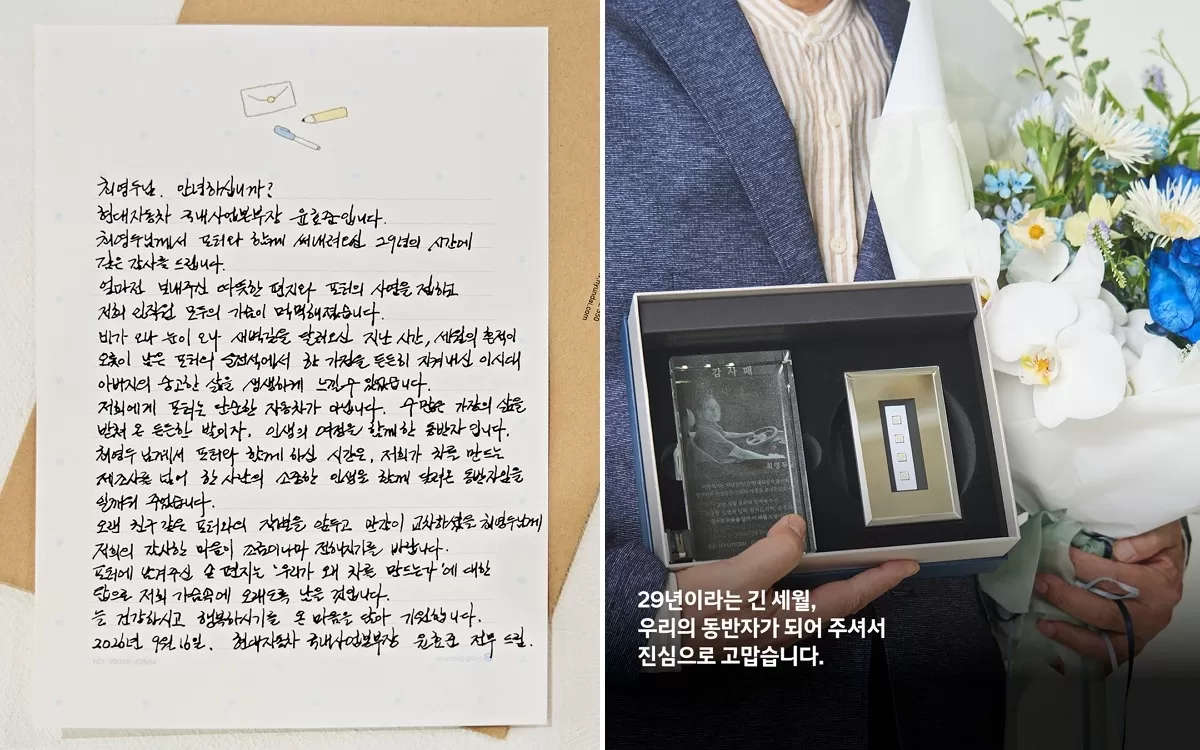 최영수님. 안녕하십니까?
현대자동차 국내사업본부장 윤효준입니다.
최영수님께서 포터와 함께 써내려오신 29년의 시간에
깊은 감사를 드립니다.
얼마전 보내주신 따뜻한 편지와 포터의 사연을 접하고
저희 임직원 모두의 가슴이 먹먹해졌습니다.
비가 오나 눈이 오나 새벽길을 달려오신 지난 시간, 세월의 흔적이
오롯이 남은 포터의 운전석에서 한 가정을 든든히 지켜내신 이시대
아버지의 숭고한 삶을 생생하게 느낄수 있었습니다.
저희에게 포터는 단순한 자동차가 아닙니다. 수많은 가장의 삶을
받쳐 온 든든한 발이자, 인생의 여정을 함께한 동반자입니다.
최영수님께서 포터와 함께 하신 시간은, 저희가 차를 만드는
제조사를 넘어 한 사람의 소중한 인생을 함께 달려온 동반자임을
일깨워 주었습니다.
오랜 친구같은 포터와의 작별을 앞두고 만감이 교차하셨을 최영수님께
저희의 감사한 마음이 조금이나마 전해지기를 바랍니다.
포터에 남겨주신 손 편지는 '우리가 왜 차를 만드는가'에 대한
답으로 저희 가슴속에 오래도록 남을 것입니다.
늘 건강하시고 행복하시기를 온 마음을 담아 기원합니다.
2026년 9월 16일. 현대자동차 국내사업본부장 윤효준 전무 드림.
hyundai.com
감사패
최영수
29년이라는 긴 세월,
우리의 동반자가 되어 주셔서
진심으로 고맙습니다.